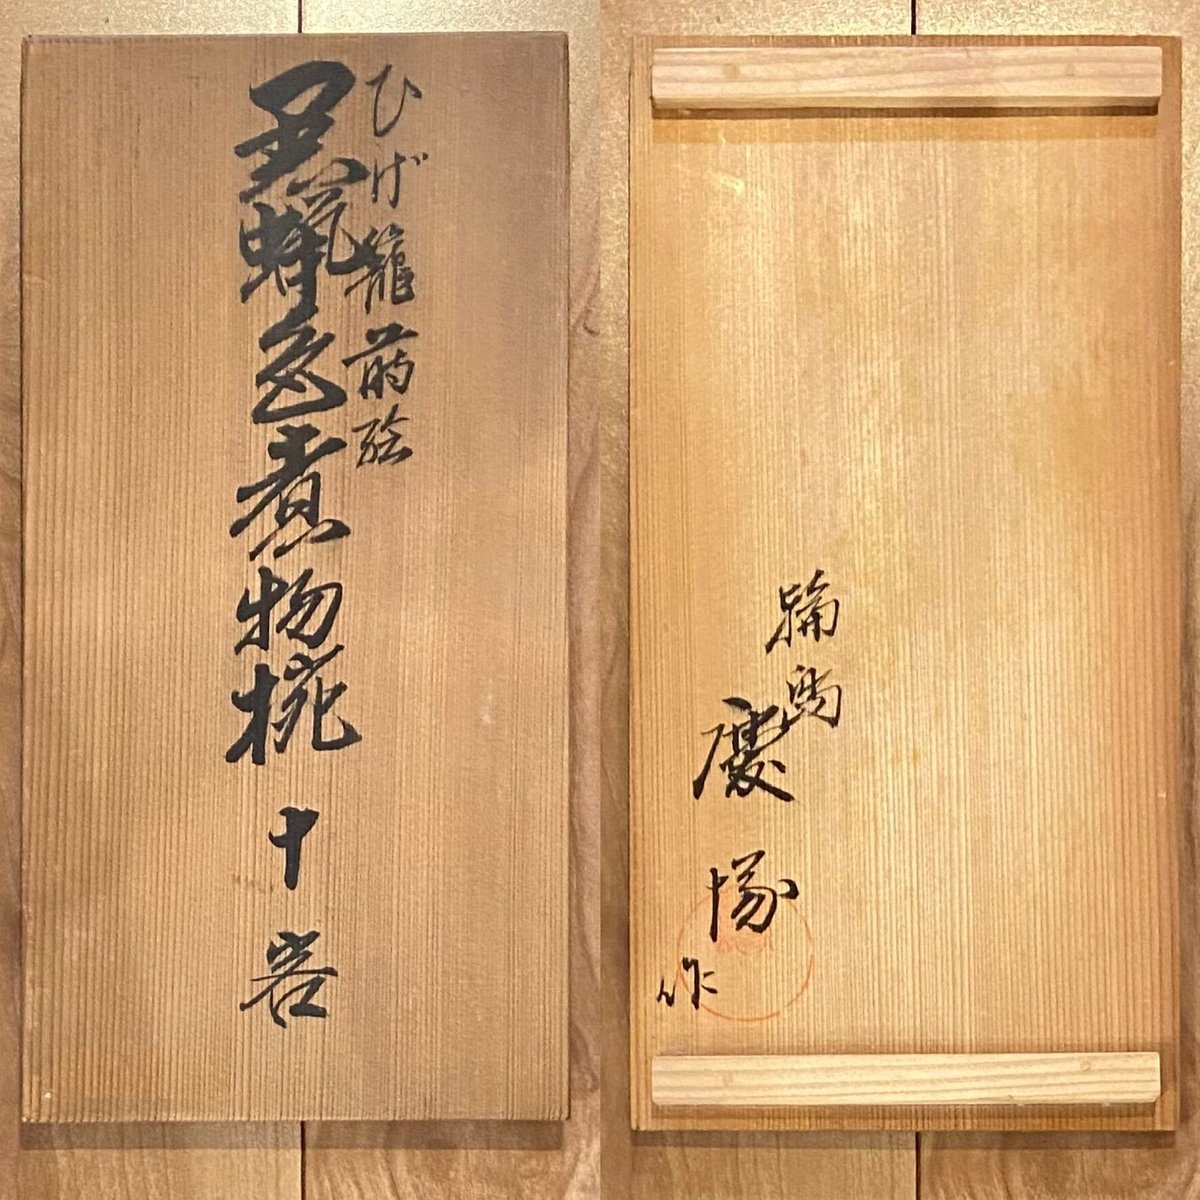 ひげ籠蒔絵
黒蝋色煮物椀 十客
輪島
慶塚
作